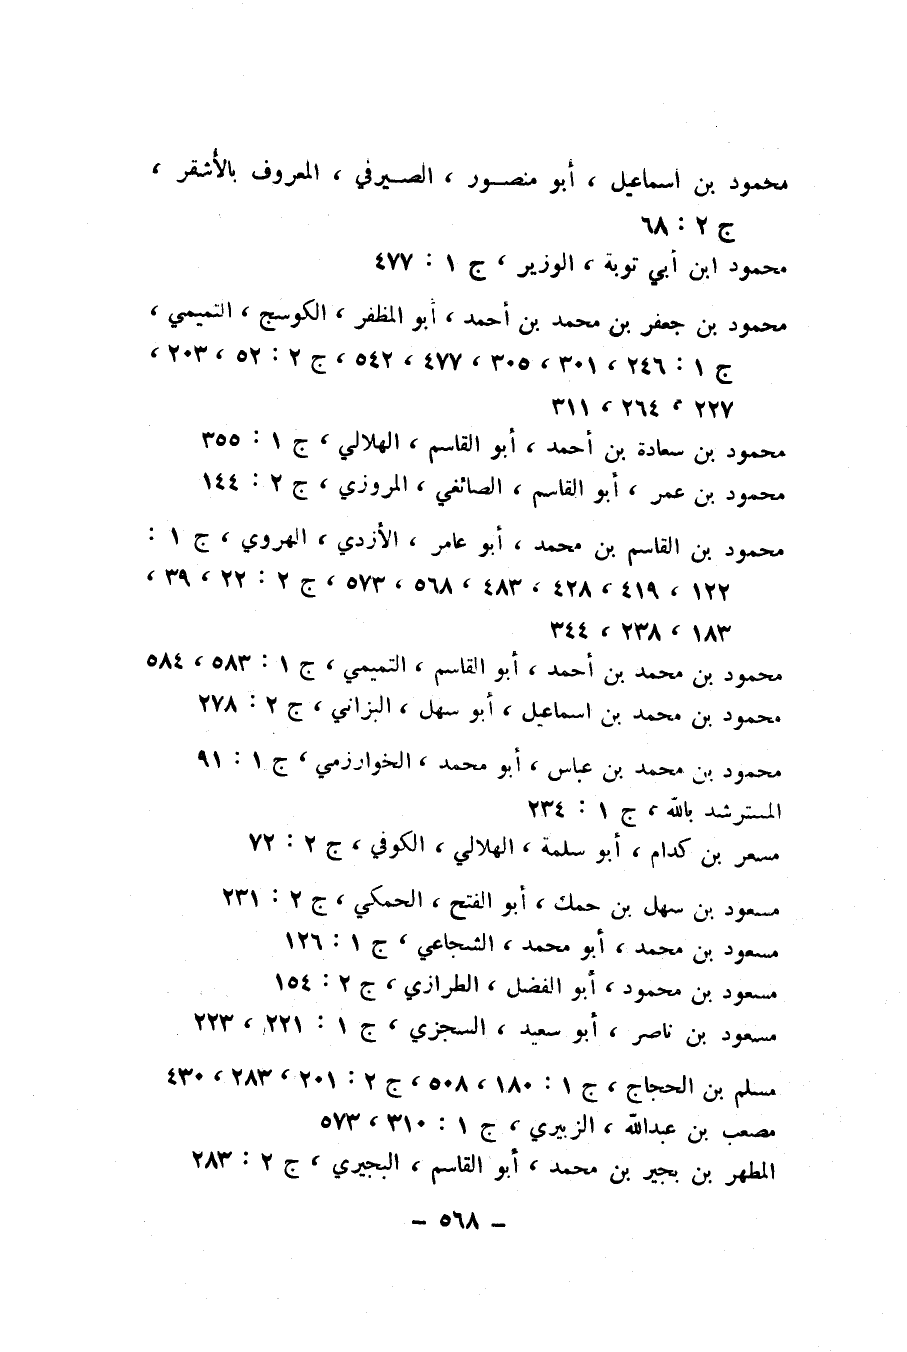 محمود بن اسماعيل ، أبو منصور ، الصيرفي ، المعروف بالأشقر ،
ج ٢ : ٦٨
محمود ابن أبي توبة ، الوزير ، ج ١ : ٤٧٧
محمود بن جعفر بن محمد بن أحمد ، أبو المظفر ، الكوسج ، التميمي ،
ج ١ : ٢٤٦ ، ٣٠١ ، ٣٠٥ ، ٤٧٧ ، ٥٤٢ ، ج ٢ : ٥٢ ، ٢٠٣ ،
٢٢٧ ، ٢٦٤ ، ٣١١
محمود بن سعادة بن أحمد ، أبو القاسم ، الهلالي ، ج ١ : ٣٥٥
محمود بن عمر ، أبو القاسم ، الصائغي ، المروزي ، ج ٢ : ١٤٤
محمود بن القاسم بن محمد ، أبو عامر ، الأزدي ، الهروي ، ج ١ :
١٢٢ ، ٤١٩ ، ٤٢٨ ، ٤٨٣ ، ٥٦٨ ، ٥٧٣ ، ج ٢ : ٢٢ ، ٣٩ ،
١٨٣ ، ٢٣٨ ، ٣٤٤
محمود بن محمد بن أحمد ، أبو القاسم ، التميمي ، ج ١ : ٥٨٣ ، ٥٨٤
محمود بن محمد بن اسماعيل ، أبو سهل ، البزاني ، ج ٢ : ٢٧٨
محمود بن محمد بن عباس ، أبو محمد ، الخوارزمي ، ج ١ : ٩١
المسترشد بالله ، ج ١ : ٢٣٤
مسعر بن كدام ، أبو سلمة ، الهلالي ، الكوفي ، ج ٢ : ٧٢
مسعود بن سهل بن حمك ، أبو الفتح ، الحمكي ، ج ٢ : ٢٣١
مسعود بن محمد ، أبو محمد ، الشجاعي ، ج ١ : ١٢٦
مسعود بن محمود ، أبو الفضل ، الطرازي ، ج ٢ : ١٥٤
مسعود بن ناصر ، أبو سعيد ، السجزي ، ج ١ : ٢٢١ ، ٢٢٣
مسلم بن الحجاج ، ج ١ : ١٨٠ ، ٥٠٨ ، ج ٢ : ٢٠١ ، ٢٨٣ ، ٤٣٠
مصعب بن عبدالله ، الزبيري ، ج ١ : ٣١٠ ، ٥٧٣
المطهر بن بجير بن محمد ، أبو القاسم ، البجيري ، ج ٢ : ٢٨٣
– ٥٦٨ –